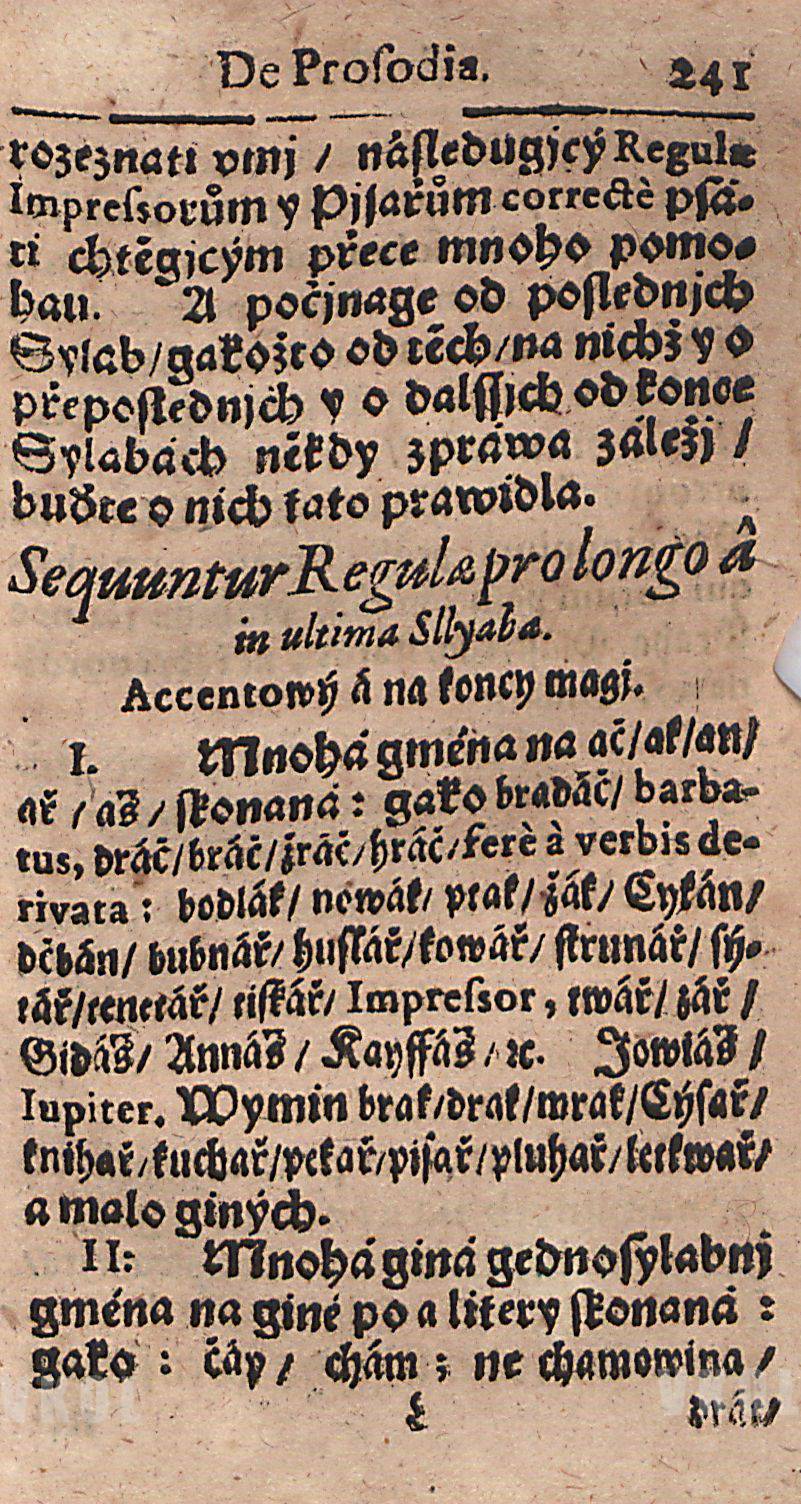 De Proſodia. 241
rozeznati vmj / náſledugjcý Regulæ
Impreſsorům y Pjſařům correctè pſá-
ti chtěgjcým přece mnoho pomo-
hau. A počjnage od poſlednjch
Sylab/gakožto od těch/na nichž y o
přepoſlednjch y o dalſſjch od konce
Sylabách někdy zpráwa záležj /
buďte o nich tato prawidla.
Sequuntur Regulæ pro longo â
in ultima Sllyaba.
Accentowý á na koncy magj.
I. Mnohá gména na ač/ak/an/
ař / aš / ſkonaná : gako bradáč/ barba-
tus, dráč/bráč/žráč/hráč/ferè à verbis de-
rivata : bodlák/ nowák/ ptak/ žák/ Cykán/
dčbán/ bubnář/ huſlář/kowář/ ſtrunář/ ſý-
tář/tenetář/ tiſkář/ Impreſsor, twář/ zář /
Gidáš/ Annáš / Kayffáš / ꝛc. Jowiáš /
Iupiter. Wymin brak/drak/mrak/Cýſař/
knihař/kuchař/pekař/piſař/pluhař/lektwař/
a malo giných.
II: Mnohá giná gednoſylabnj
gména na giné po a litery ſkonaná :
gako : čáp / chám ; ne chamowina /
drát/